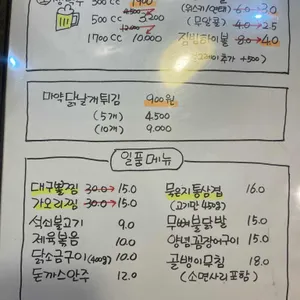 300 cc 1900
500 cc 4,500 → 3200
1700 cc 12,000 → 10,000
(위스키/언더) 6.0 → 3.0
(무알콜) 4.0 → 2.5
짐빔하이볼 8.0 → 4.0
추가 +500)
마약닭날개튀김 900원
(5개) 4.500
(10개) 9.000
일품메뉴
대구뽈찜 30.0 → 15.0
가오리찜 30.0 → 15.0
석쇠불고기 9.0
제육볶음 10.0
닭소금구이(400g) 10.0
돈까스안주 12.0
묵은지통삼겹 16.0
(고기만 450g)
무뼈불닭발 15.0
양념꼼장어구이 15.0
골뱅이무침 18.0
(소면사리포함)